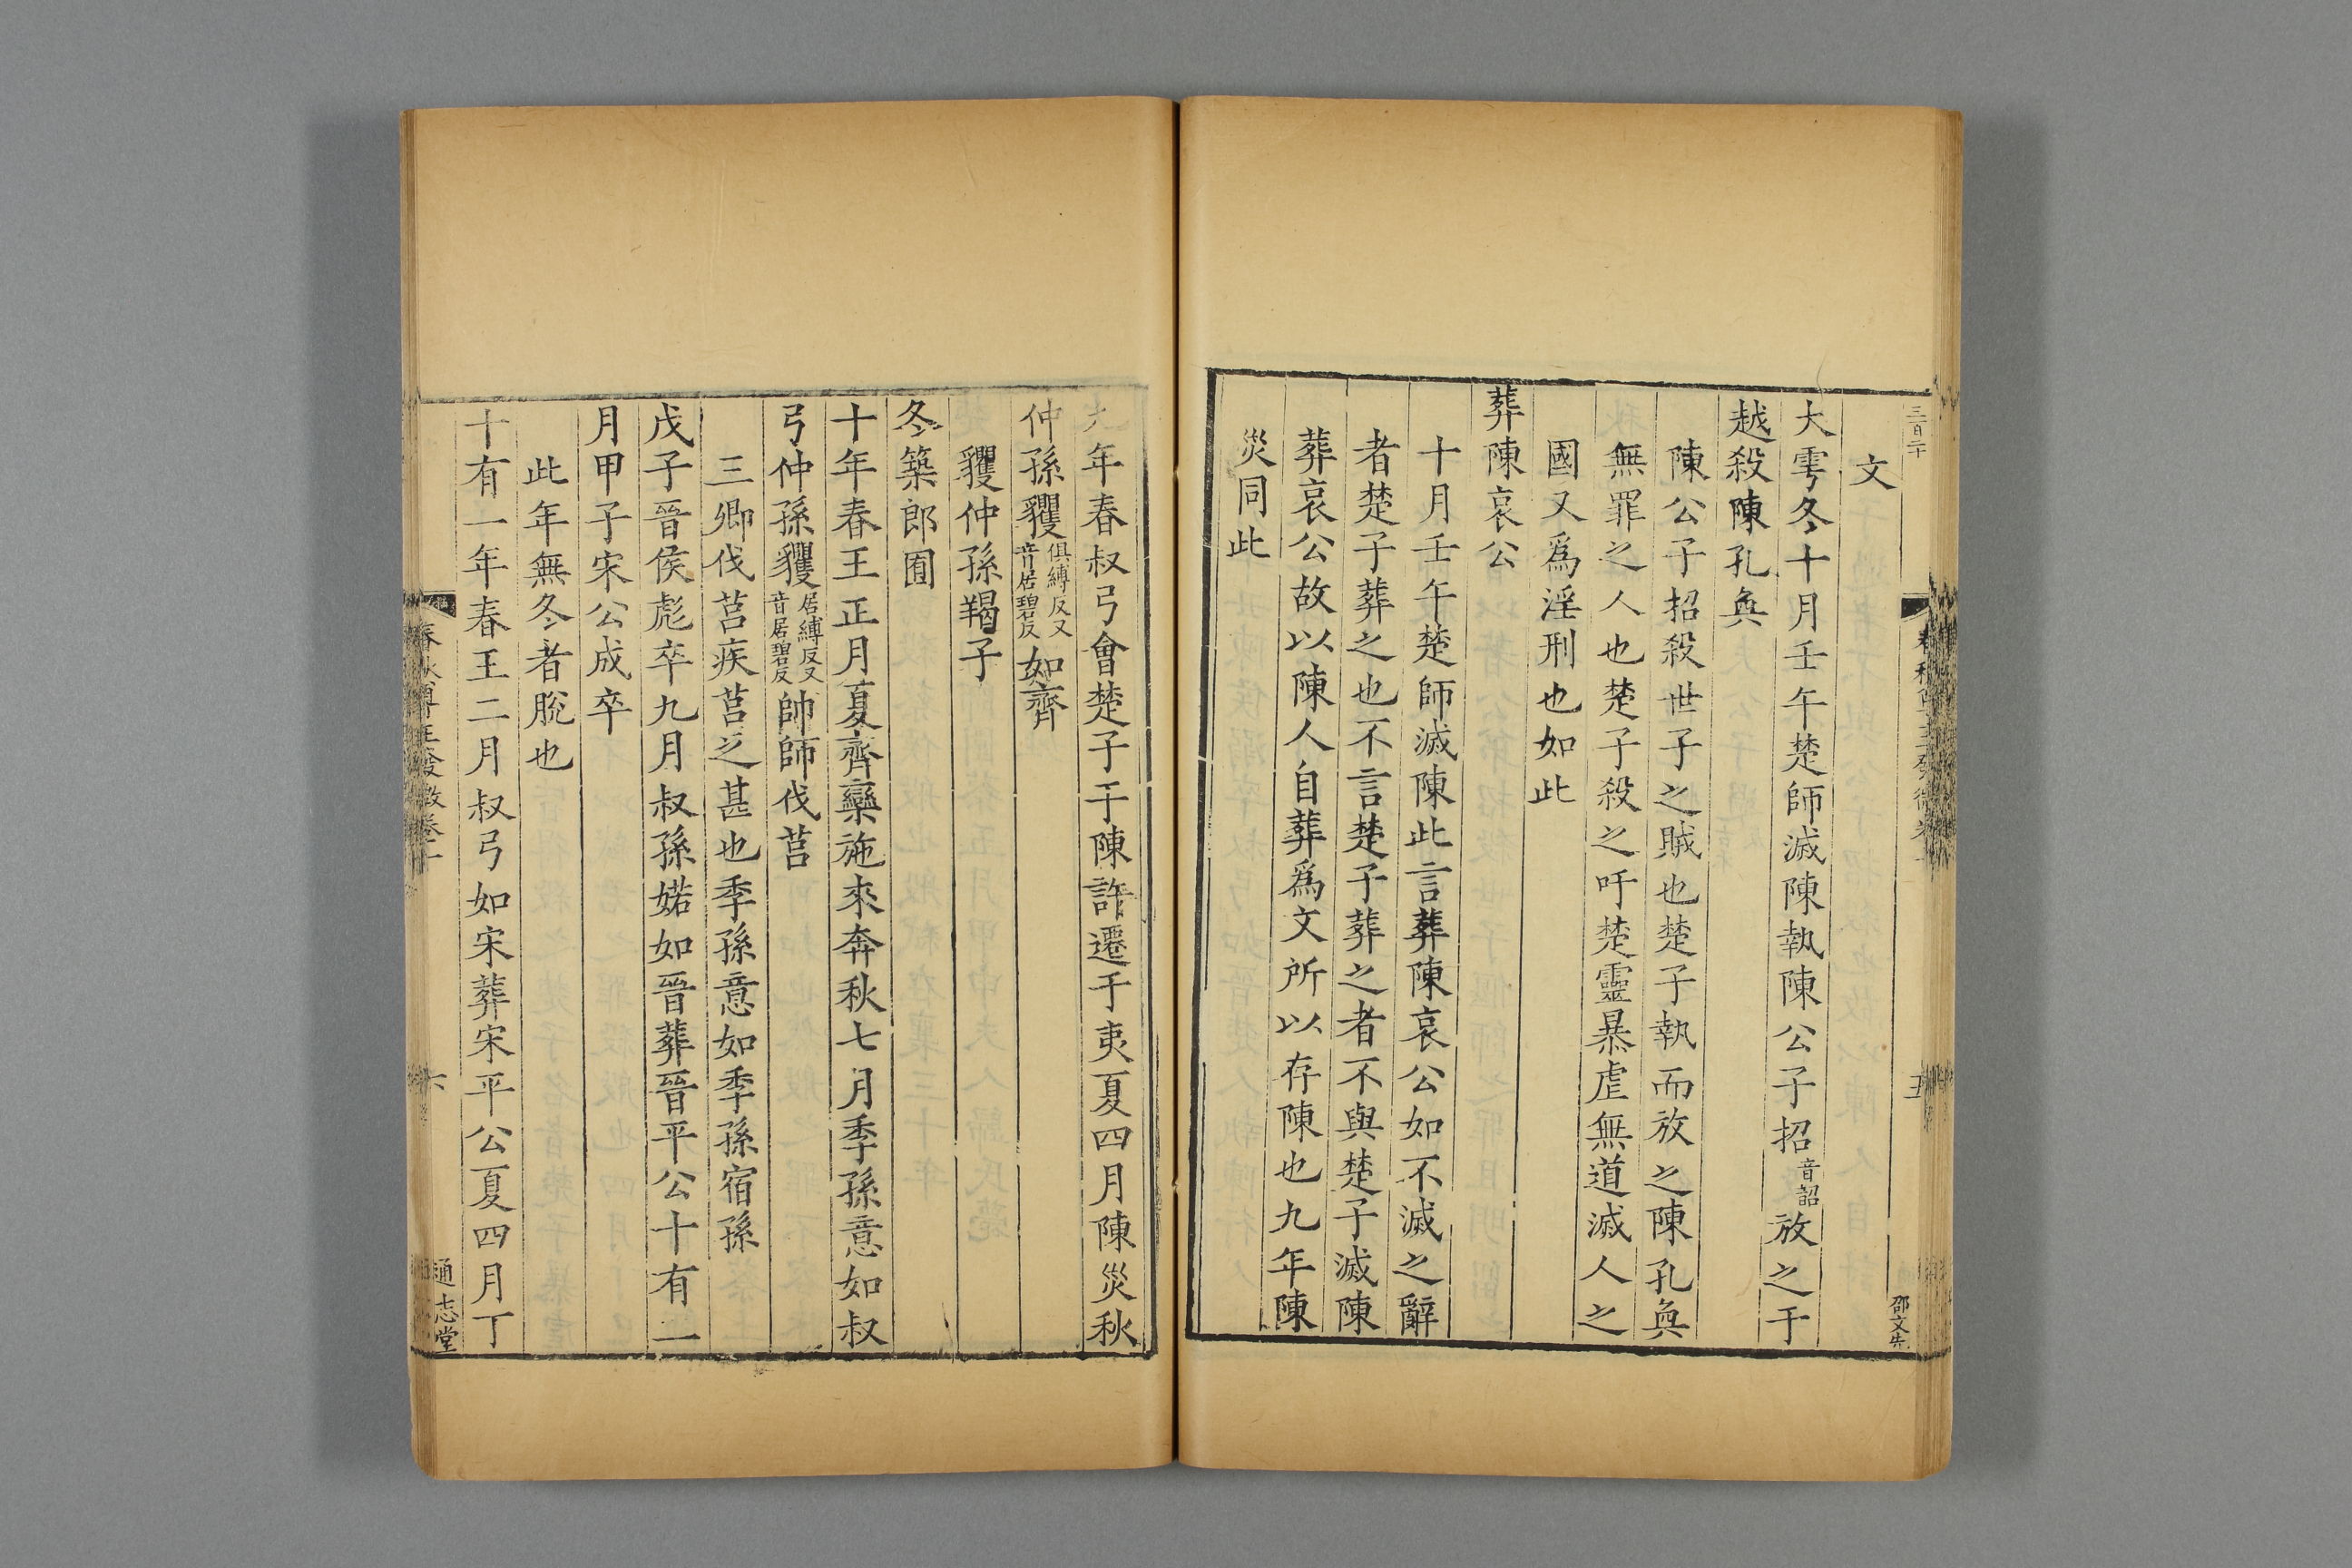 三百二十
文
大雩冬十月壬午楚師滅陳執陳公子招音韶放之于
越殺陳孔奐
陳公子招殺世子之賊也楚子執而放之陳孔奐
無罪之人也楚子殺之吁楚靈暴虐無道滅人之
國又爲淫刑也如此
葬陳哀公
十月壬午楚師滅陳此言葬陳哀公如不滅之辭
者楚子葬之也不言楚子葬之者不與楚子滅陳
葬哀公故以陳人自葬爲文所以存陳也九年陳
災同此
邵文先
九年春叔弓會楚子于陳許遷于夷夏四月陳災秋
仲孫貜俱縛反又音居碧反如齊
貜仲孫羯子
冬築郎囿
十年春王正月夏齊欒施來奔秋七月季孫意如叔
弓仲孫貜居縛反又音居碧反帥師伐莒
三卿伐莒疾莒之甚也季孫意如季孫宿孫
戊子晉侯彪卒九月叔孫婼如晉葬晉平公十有一
月甲子宋公成卒
此年無冬者脫也
十有一年春王二月叔弓如宋葬宋平公夏四月丁
春秋尊王發微卷十
六
通志堂